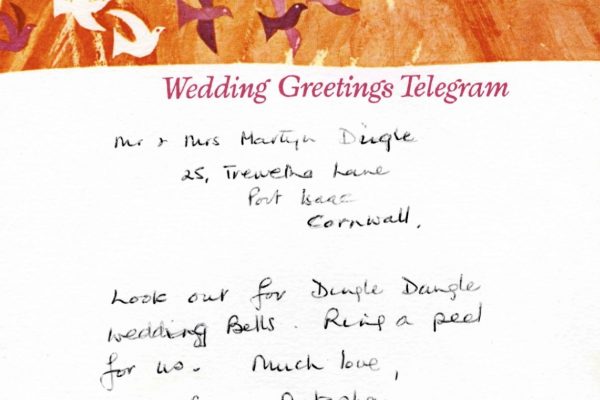 Wedding Greetings Telegram
Mr & Mrs Martyn Dingle
25, Trewetha Lane
Port Isaac
Cornwall.
Look out for Dingle Dangle
wedding Bells. Ring a peel
for us. Much love,